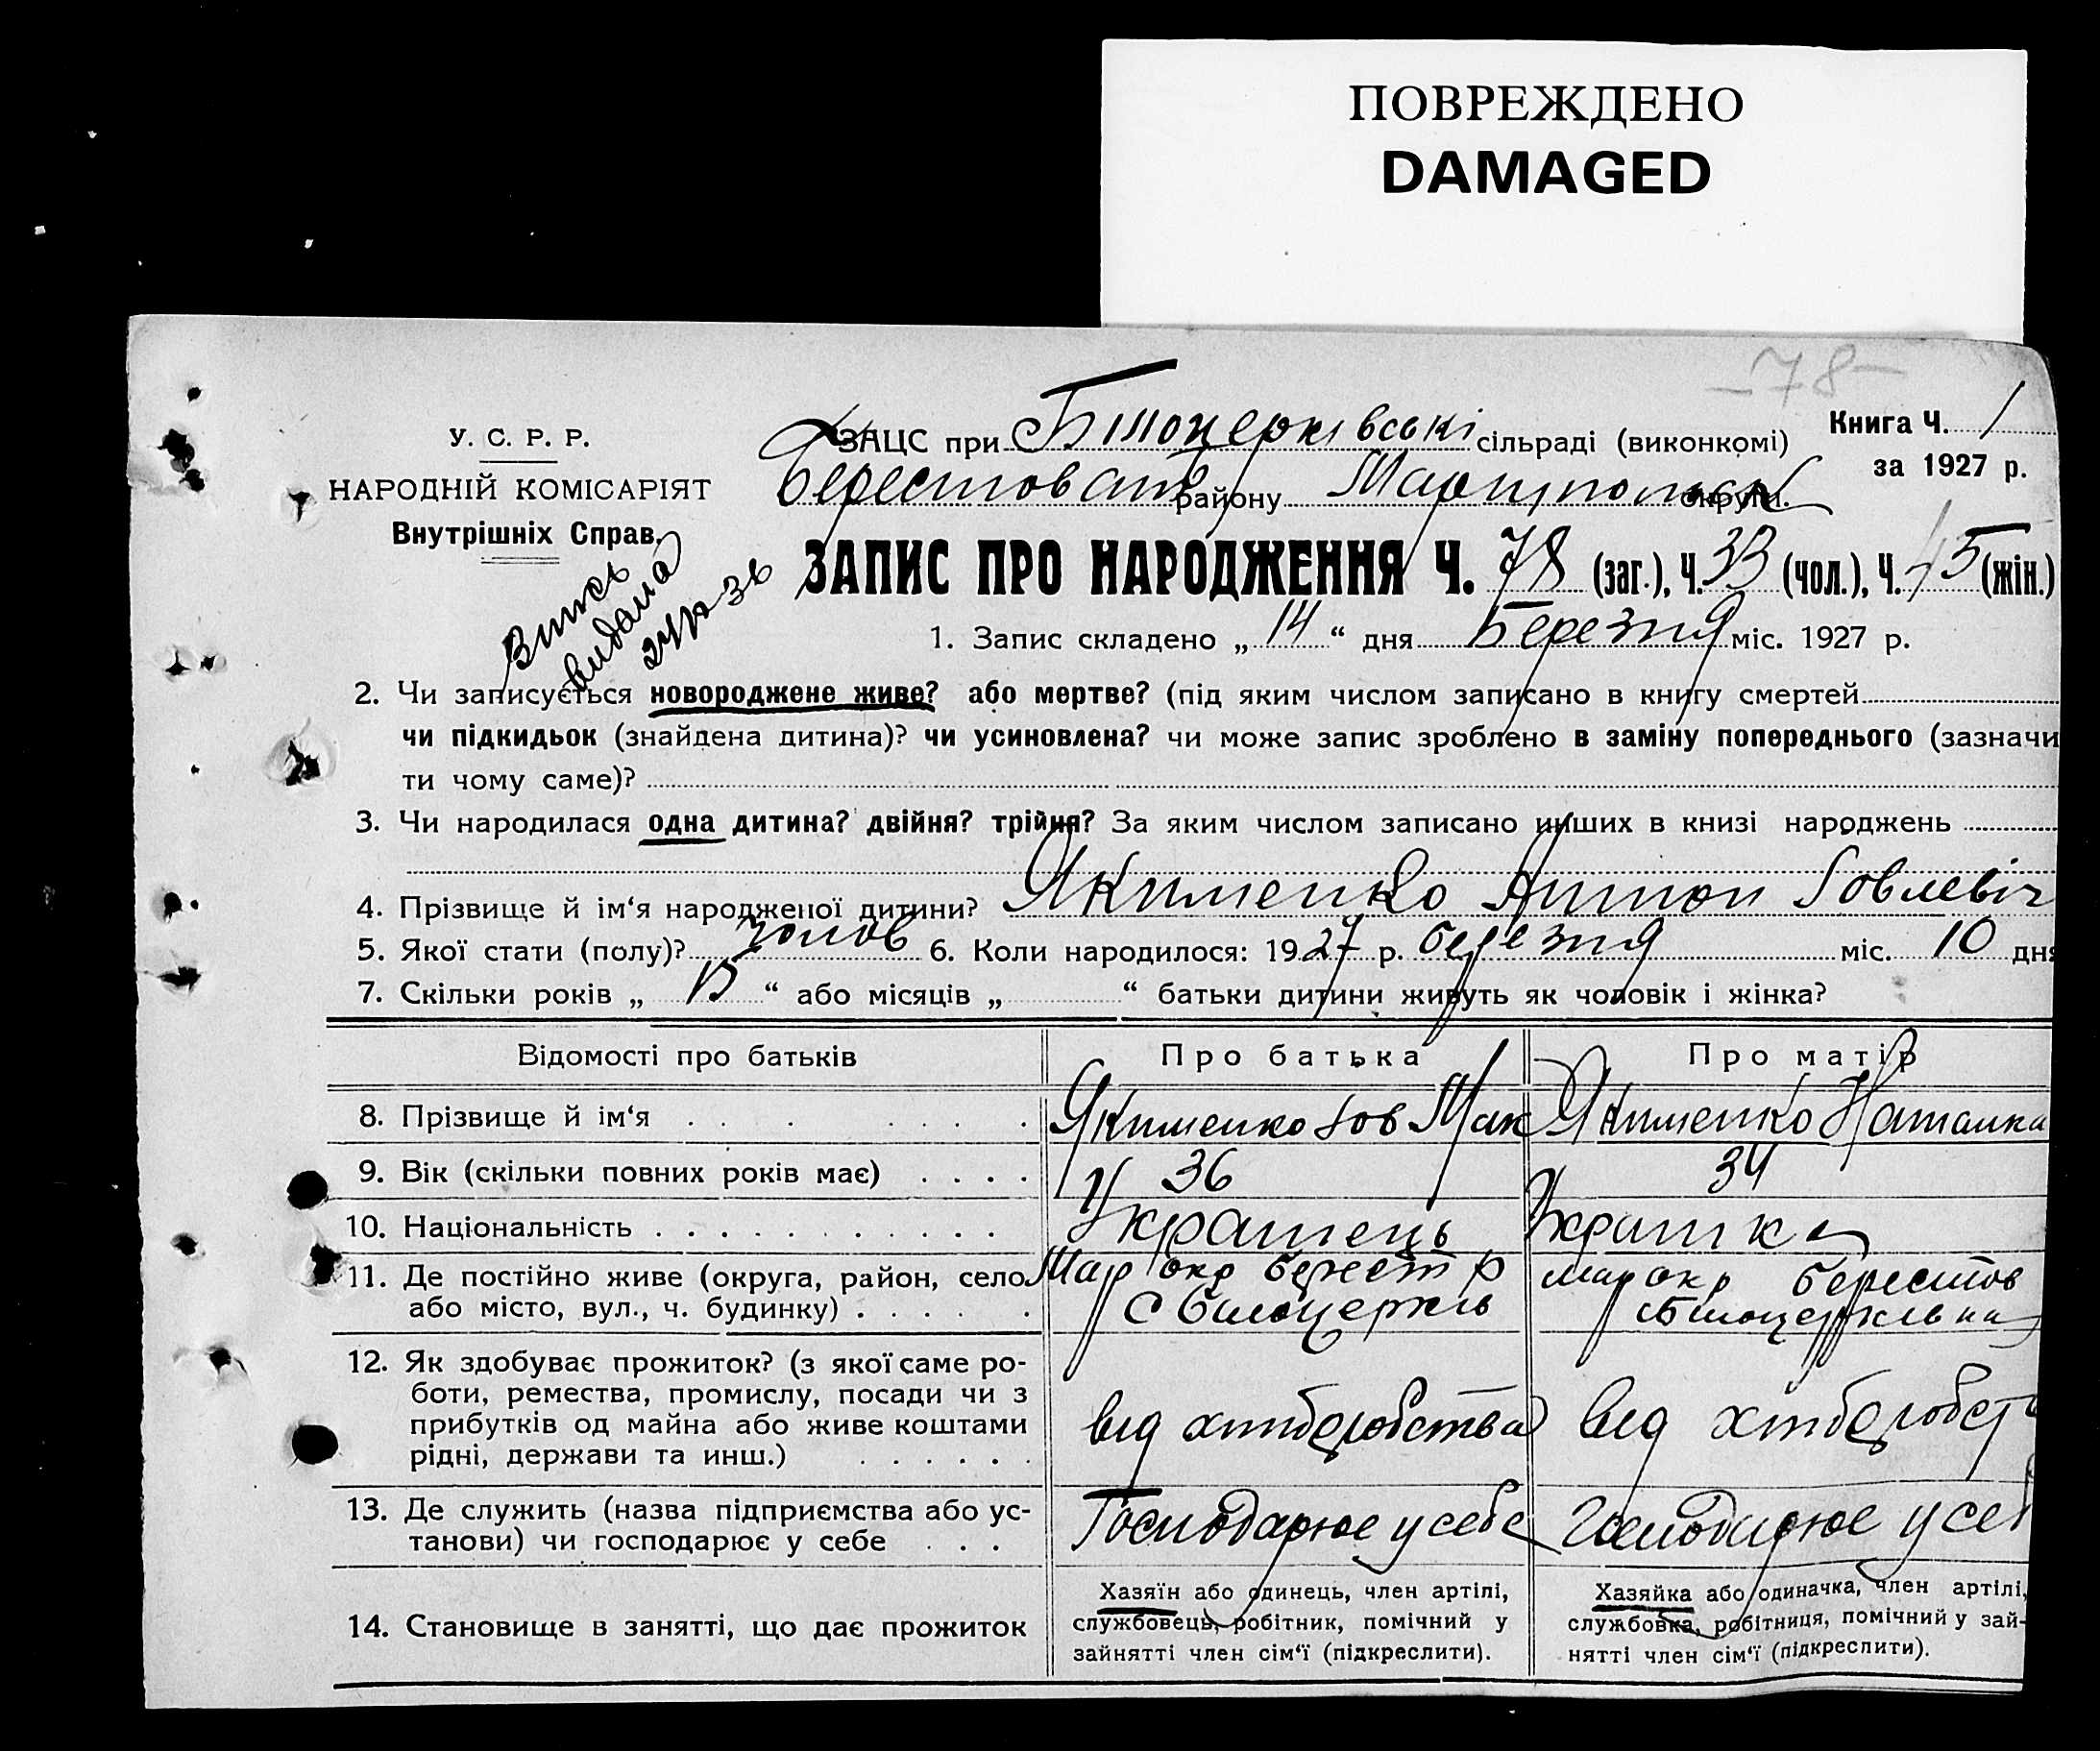 ПОВРЕЖДЕНО
DAMAGED
-78-
У. С. Р. Р.
НАРОДНІЙ КОМІСАРІЯТ
Внутрішніх Справ.
ЗАЦС при Білоцерківські сільраді (виконкомі)
Берестоват району Маріупольск округи.
Книга Ч. 1
за 1927 р.
видана
ЗАПИС ПРО НАРОДЖЕННЯ Ч. 78 (заг.), Ч. 33 (чол.), Ч. 45 (жін.)
1. Запис складено „ 14 “ дня Березня міс. 1927 р.
2. Чи записується новороджене живе? або мертве? (під яким числом записано в книгу смертей
чи підкидьок (знайдена дитина)? чи усиновлена? чи може запис зроблено в заміну попереднього (зазначи
ти чому саме)?
3. Чи народилася одна дитина? двійня? трійня? За яким числом записано инших в книзі народжень
4. Прізвище й ім‘я народженої дитини? Якименко Антон Іовлевіч
5. Якої стати (полу)? чолов 6. Коли народилося: 1927 р. березня міс. 10 дня
7. Скільки років „ “ або місяців „ “ батьки дитини живуть як чоловік і жінка?
Відомості про батьків Про батька Про матір
8. Прізвище й ім‘я Якименко Іов Мак Якименко Наталка
9. Вік (скільки повних років має) 36 34
10. Національність Українець Українка
11. Де постійно живе (округа, район, село Мар окр берест р мар окр берестов
або місто, вул., ч. будинку) с Білоцерків с Білоцерківка
12. Як здобуває прожиток? (з якої саме ро-
боти, ремества, промислу, посади чи з
прибутків од майна або живе коштами від хліборобства від хліборобст
рідні, держави та инш.)
13. Де служить (назва підприємства або ус-
танови) чи господарює у себе Господарює у себе Господарює у себ
14. Становище в занятті, що дає прожиток
Хазяїн або одинець, член артілі,
службовець, робітник, помічний у
зайнятті член сім‘ї (підкреслити).
Хазяйка або одиначка, член артілі,
службовка, робітниця, помічний у зай-
нятті член сім‘ї (підкреслити).